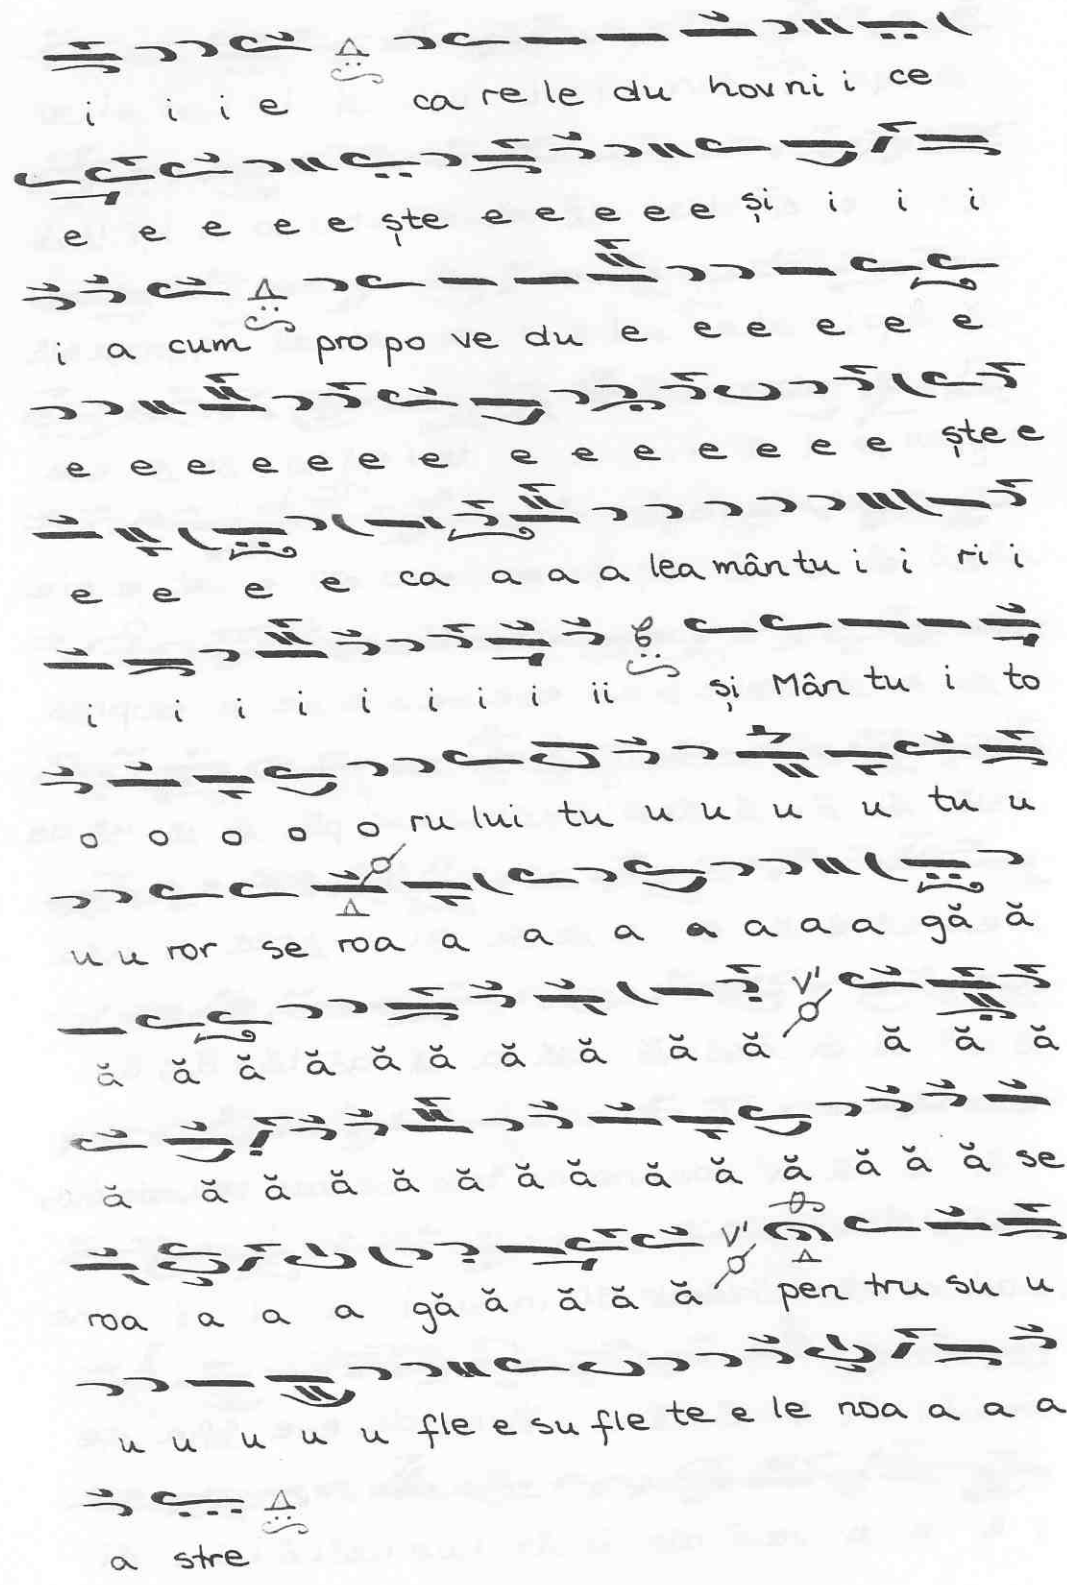 i i i e ca re le du hov ni i ce
e e e e e ște e e e e e și i i i
i a cum pro po ve du e e e e e e
e e e e e e e e e e e e e e ște e
e e e e ca a a a lea mân tu i i ri i
i i i i i i i i ii și Mân tu i to
o o o o o ru lui tu u u u u tu u
u u ror se roa a a a a a a a gă ă
ă ă ă ă ă ă ă ă ă ă V' ă ă ă
ă ă ă ă ă ă ă ă ă ă ă ă ă ă se
roa a a a gă ă ă ă ă V' pen tru su u
u u u u u fle e su fle te e le noa a a a
a stre